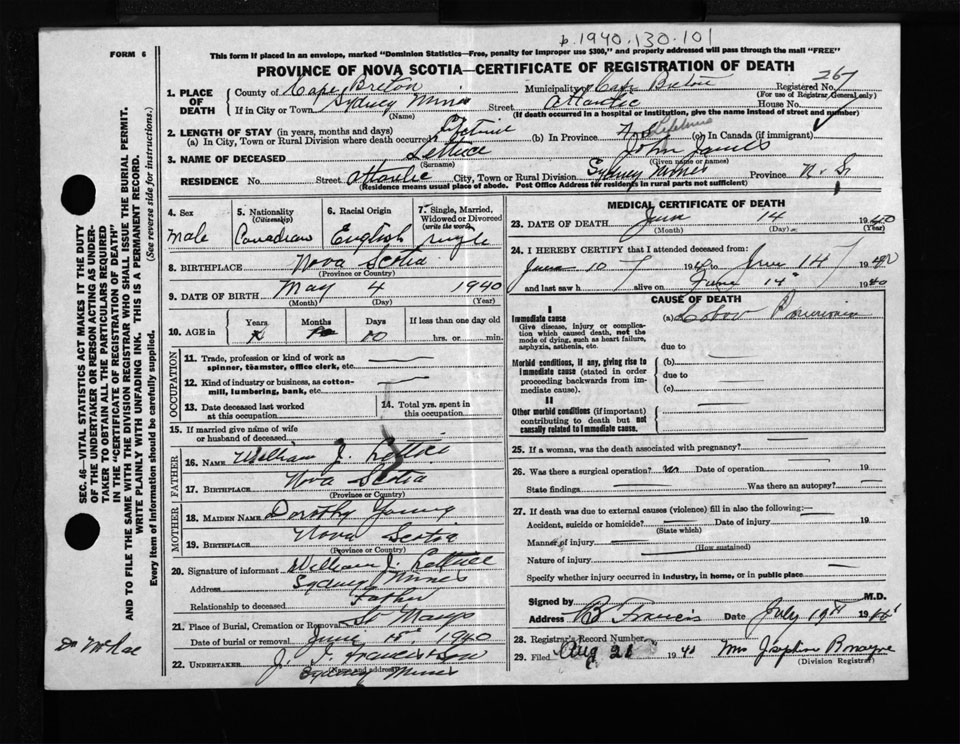 p. 1940.130.101
FORM 6
This form if placed in an envelope, marked "Dominion Statistics—Free, penalty for improper use $300," and properly addressed will pass through the mail "FREE"
PROVINCE OF NOVA SCOTIA—CERTIFICATE OF REGISTRATION OF DEATH
1. PLACE OF DEATH
County of Cape Breton Municipality of Cape Breton Registered No. 267
(For use of Registrar General only)
If in City or Town Sydney Mines Street Atlantic House No.
(Name) (If death occurred in a hospital or Institution, give the name instead of street and number)
2. LENGTH OF STAY (in years, months and days)
(a) In City, Town or Rural Division where death occurred Lifetime (b) In Province Lifetime (c) In Canada (if immigrant)
3. NAME OF DECEASED Lettice John James
(Surname) (Given name or names)
RESIDENCE No. Street Atlantic City, Town or Rural Division Sydney Mines Province N.S.
(Residence means usual place of abode. Post Office Address for residents in rural parts not sufficient)
4. Sex
Male
5. Nationality
(Citizenship)
Canadian
6. Racial Origin
English
7. Single, Married, Widowed or Divorced
(write the word)
single
8. BIRTHPLACE Nova Scotia
(Province or Country)
9. DATE OF BIRTH May 4 1940
(Month) (Day) (Year)
10. AGE in
Years Months Days If less than one day old
10 hrs. or min.
OCCUPATION
11. Trade, profession or kind of work as spinner, teamster, office clerk, etc.
12. Kind of industry or business, as cotton-mill, lumbering, bank, etc.
13. Date deceased last worked at this occupation
14. Total yrs. spent in this occupation
15. If married give name of wife or husband of deceased
FATHER
16. NAME William J. Lettice
17. BIRTHPLACE Nova Scotia
(Province or Country)
MOTHER
18. MAIDEN NAME Dorothy Young
19. BIRTHPLACE Nova Scotia
(Province or Country)
20. Signature of informant William J. Lettice
Address Sydney Mines
Relationship to deceased Father
21. Place of Burial, Cremation or Removal St Marys
Date of burial or removal June 15th 1940
22. UNDERTAKER J. J. Francis & Son
(Name and address)
Sydney Mines
MEDICAL CERTIFICATE OF DEATH
23. DATE OF DEATH June 14 1940
(Month) (Day) (Year)
24. I HEREBY CERTIFY that I attended deceased from:
June 10 1940 to June 14 1940
and last saw h alive on June 14 1940
CAUSE OF DEATH
I
Immediate cause
Give disease, injury or complication which caused death, not the mode of dying, such as heart failure, asphyxia, asthenia, etc.
(a) Lobar Pneumonia
due to
Morbid conditions, if any, giving rise to immediate cause (stated in order proceeding backwards from immediate cause).
(b)
due to
(c)
II
Other morbid conditions (if important) contributing to death but not causally related to immediate cause.
25. If a woman, was the death associated with pregnancy?
26. Was there a surgical operation? no Date of operation 19
State findings Was there an autopsy?
27. If death was due to external causes (violence) fill in also the following:—
Accident, suicide or homicide? Date of injury 19
(State which)
Manner of injury
(How sustained)
Nature of injury
Specify whether injury occurred in industry, in home, or in public place
Signed by M.D.
Address B Francis Date July 19th 1940
28. Registrar's Record Number
29. Filed Aug 21 1940 Mrs Josephine
(Division Registrar)
SEC. 46—VITAL STATISTICS ACT MAKES IT THE DUTY
OF THE UNDERTAKER OR PERSON ACTING AS UNDER-
TAKER TO OBTAIN ALL THE PARTICULARS REQUIRED
IN THE "CERTIFICATE OF REGISTRATION OF DEATH"
AND TO FILE THE SAME WITH THE DIVISION REGISTRAR WHO SHALL ISSUE THE BURIAL PERMIT.
WRITE PLAINLY WITH UNFADING INK. THIS IS A PERMANENT RECORD.
Every item of Information should be carefully supplied. (See reverse side for instructions.)
Dr McRae